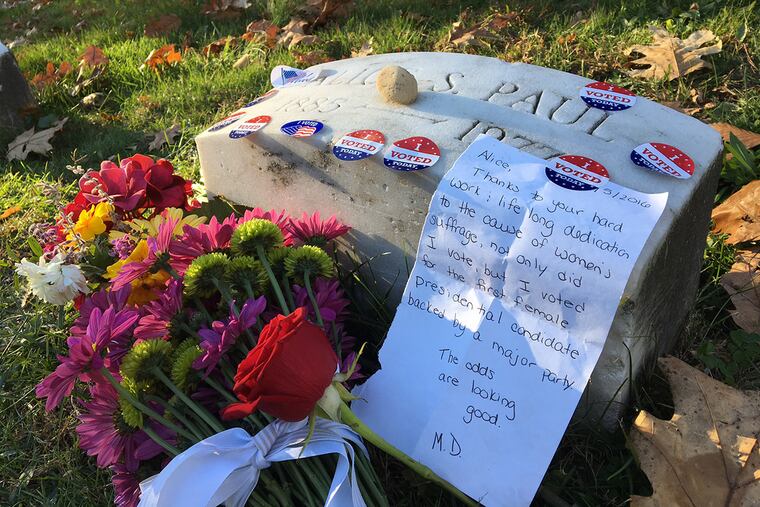 S. PAUL
1885
I
VOTED
TODAY
I VOTED
I
VOTED
TODAY
I
VOTED
TODAY
I
VOTED
TODAY
I
VOTED
TODAY
I
VOTED
TODAY
5/2016
Alice,
Thanks to your hard
work; life long dedication
to the cause of women's
suffrage, not only did
I vote, but I voted
for the first female
presidential candidate
backed by a major party.
The odds
are looking
good.
M.D.